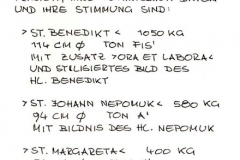 UND IHRE STIMMUNG SIND:
> ST. BENEDIKT < 1050 KG
114 CM Ø TON FIS'
MIT ZUSATZ >ORA ET LABORA<
UND STILISIERTES BILD DES
HL. BENEDIKT
> ST. JOHANN NEPOMUK < 580 KG
94 CM Ø TON A'
MIT BILDNIS DES HL. NEPOMUK
> ST. MARGARETA < 400 KG